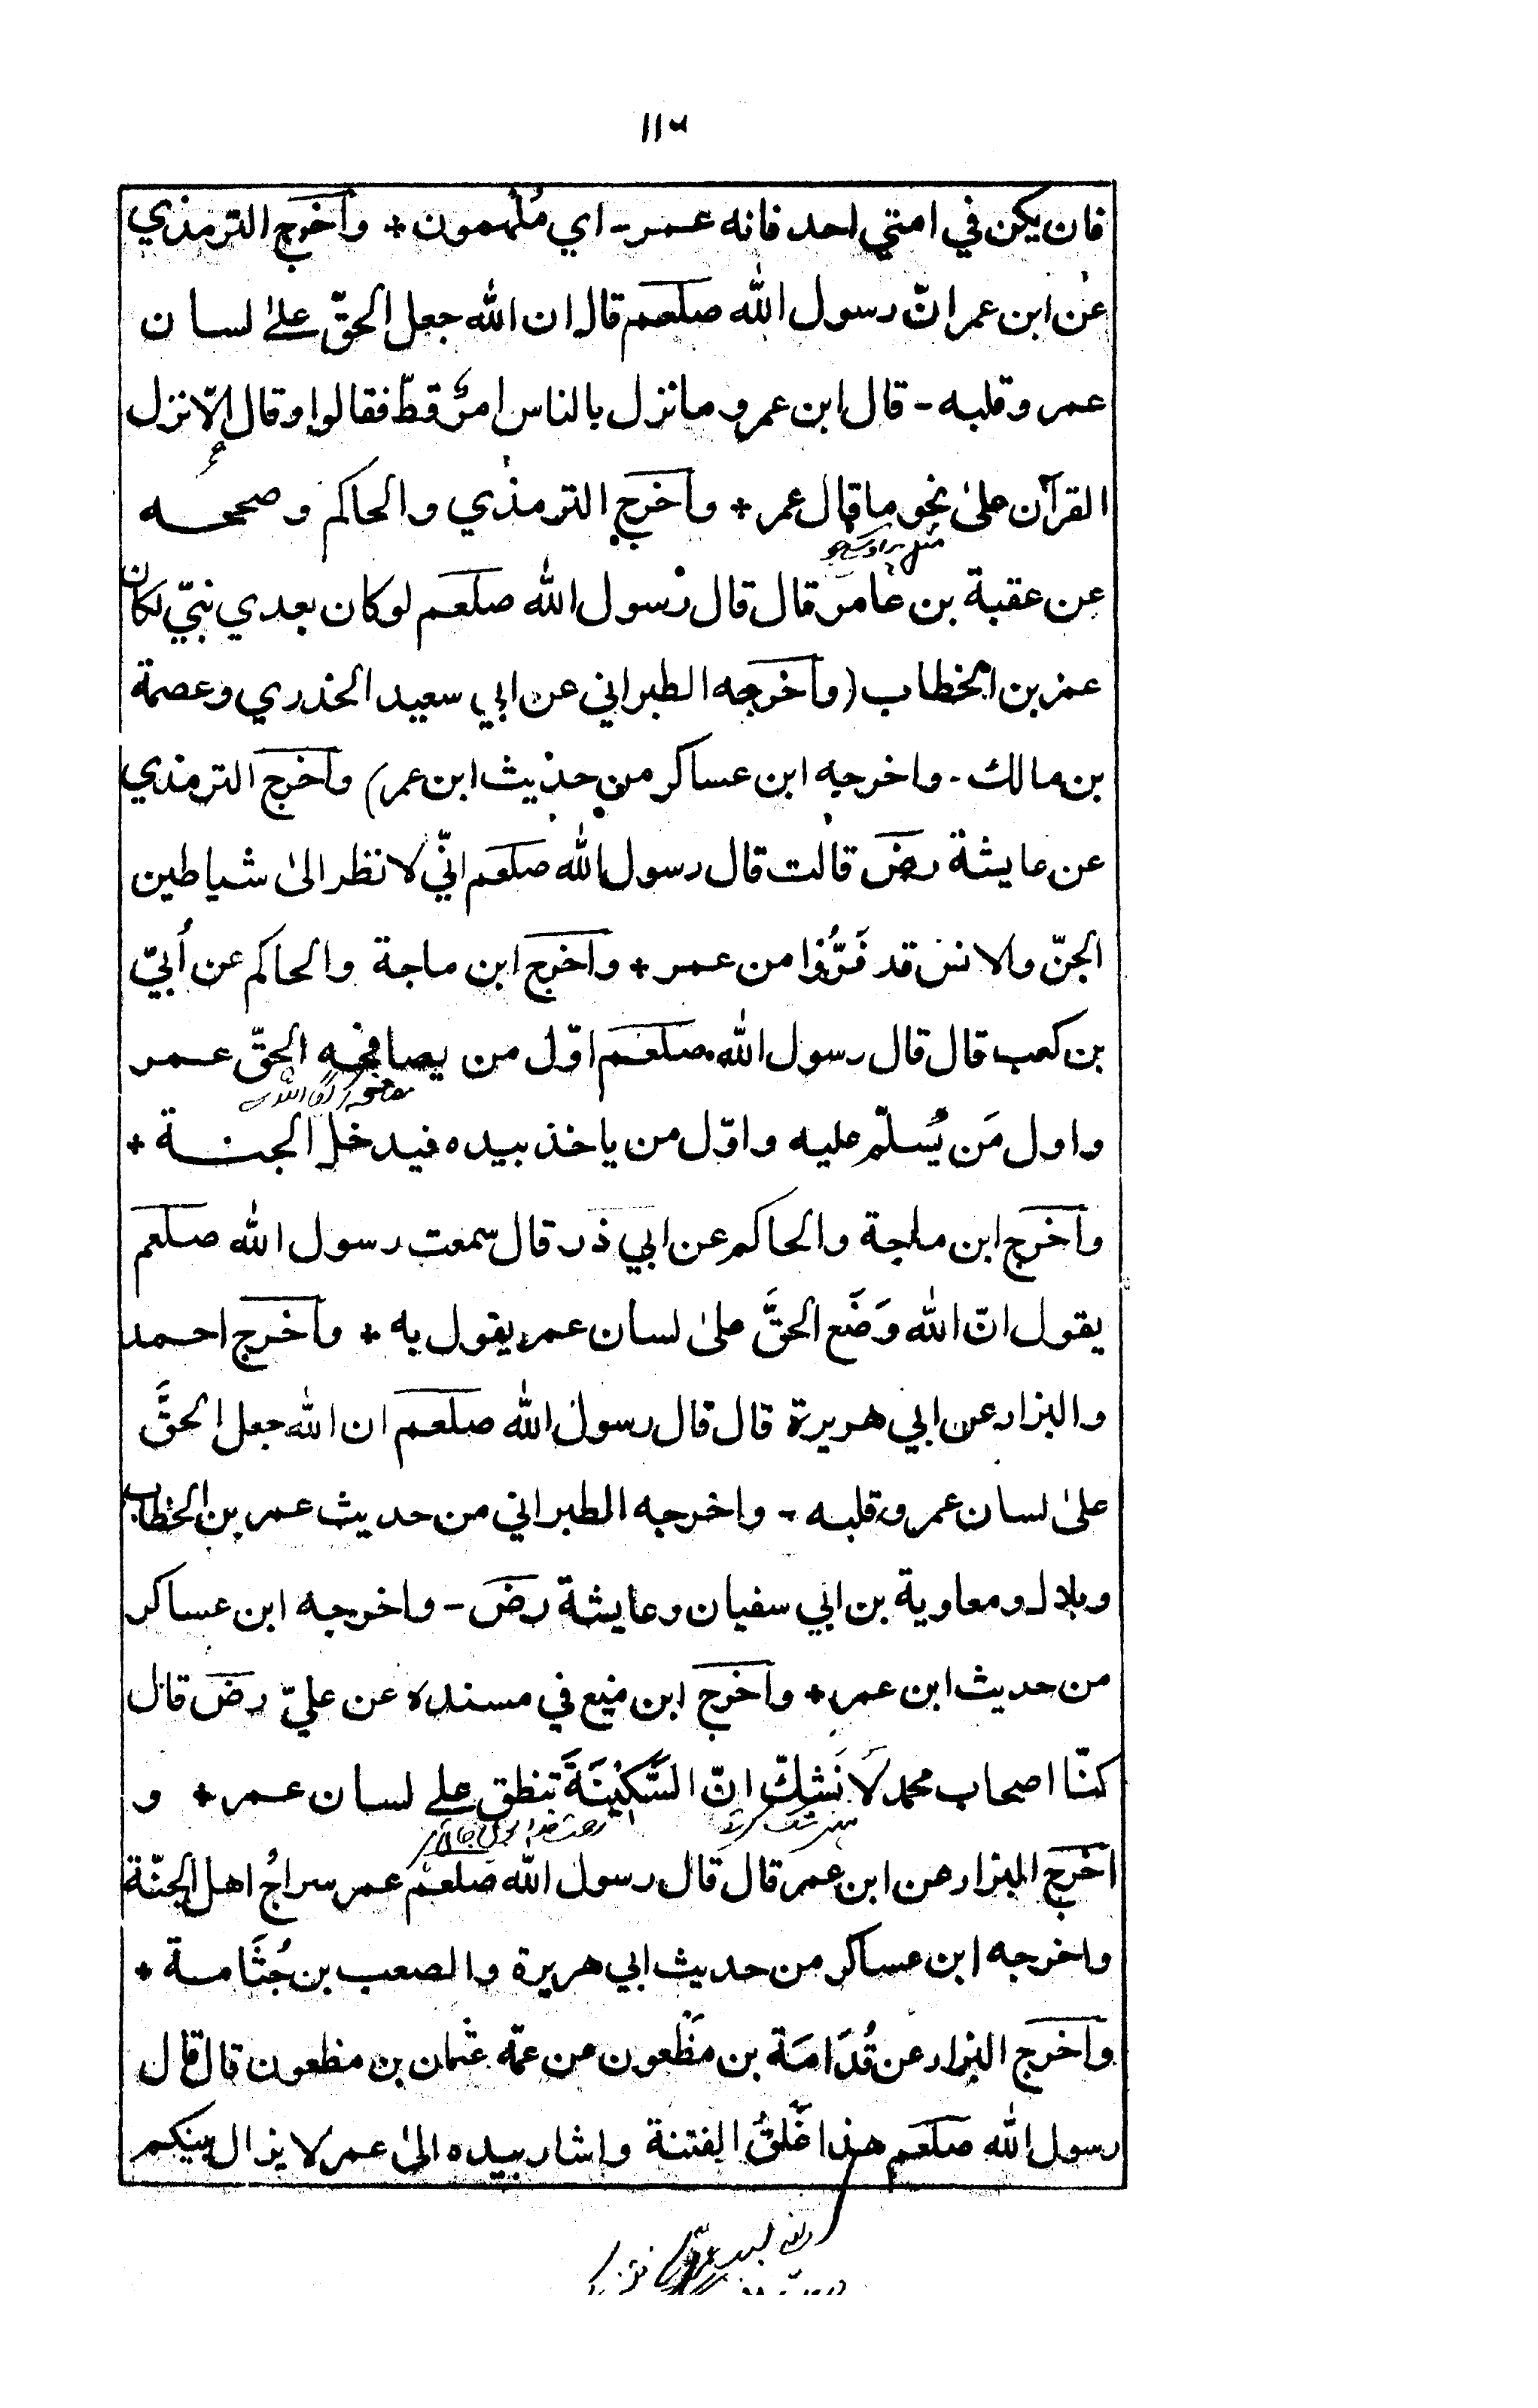 فان يكن في امتي احد فانه عمر - اي مُلْهمون + واخرج الترمذي
عن ابن عمر انّ رسول الله صلعم قال ان الله جعل الحقّ علىٰ لسان
عمر وقلبه - قال ابن عمر وما نزل بالناس امرٌ قطّ فقالوا وقال إلّا نزل
القرآن علىٰ نحو ما قال عمر + واخرج الترمذي والحاكم وصححه
عن عقبة بن عامر قال قال رسول الله صلعم لو كان بعدي نبيّ لكان
عمر بن الخطاب (واخرجه الطبراني عن ابي سعيد الخدري وعصمة
بن مالك - واخرجه ابن عساكر من حديث ابن عمر) واخرج الترمذي
عن عايشة رض قالت قال رسول الله صلعم انّي لانظر الىٰ شياطين
الجنّ والانس قد فَرُّوا من عمر + واخرج ابن ماجة والحاكم عن أُبيّ
بن كعب قال قال رسول الله صلعم اوّل من يصافحه الحقّ عمر
واول مَن يُسلّم عليه واوّل من ياخذ بيده فيدخل الجنة +
واخرج ابن ماجة والحاكم عن ابي ذر قال سمعت رسول الله صلعم
يقول انّ الله وَضَع الحقَّ علىٰ لسان عمر يقول به + واخرج احمد
والبزار عن ابي هريرة قال قال رسول الله صلعم ان الله جعل الحقَّ
علىٰ لسان عمر وقلبه - واخرجه الطبراني من حديث عمر بن الخطاب
وبلال ومعاوية بن ابي سفيان وعايشة رض - واخرجه ابن عساكر
من حديث ابن عمر + واخرج ابن منيع في مسنده عن عليّ رض قال
كنّا اصحاب محمد لا نَشكّ انّ السَّكِيْنَةَ تنطق علے لسان عمر + و
اخرج البزار عن ابن عمر قال قال رسول الله صلعم عمر سراجُ اهل الجنّة
واخرجه ابن عساكر من حديث ابي هريرة والصعب بن جُثَّامة +
واخرج البزار عن قُدَامَة بن مظْعون عن عمّه عثمان بن مظعون قال قال
رسول الله صلعم هذا غَلَقُ الفتنة واشار بيده الىٰ عمر لا يزال بينكم